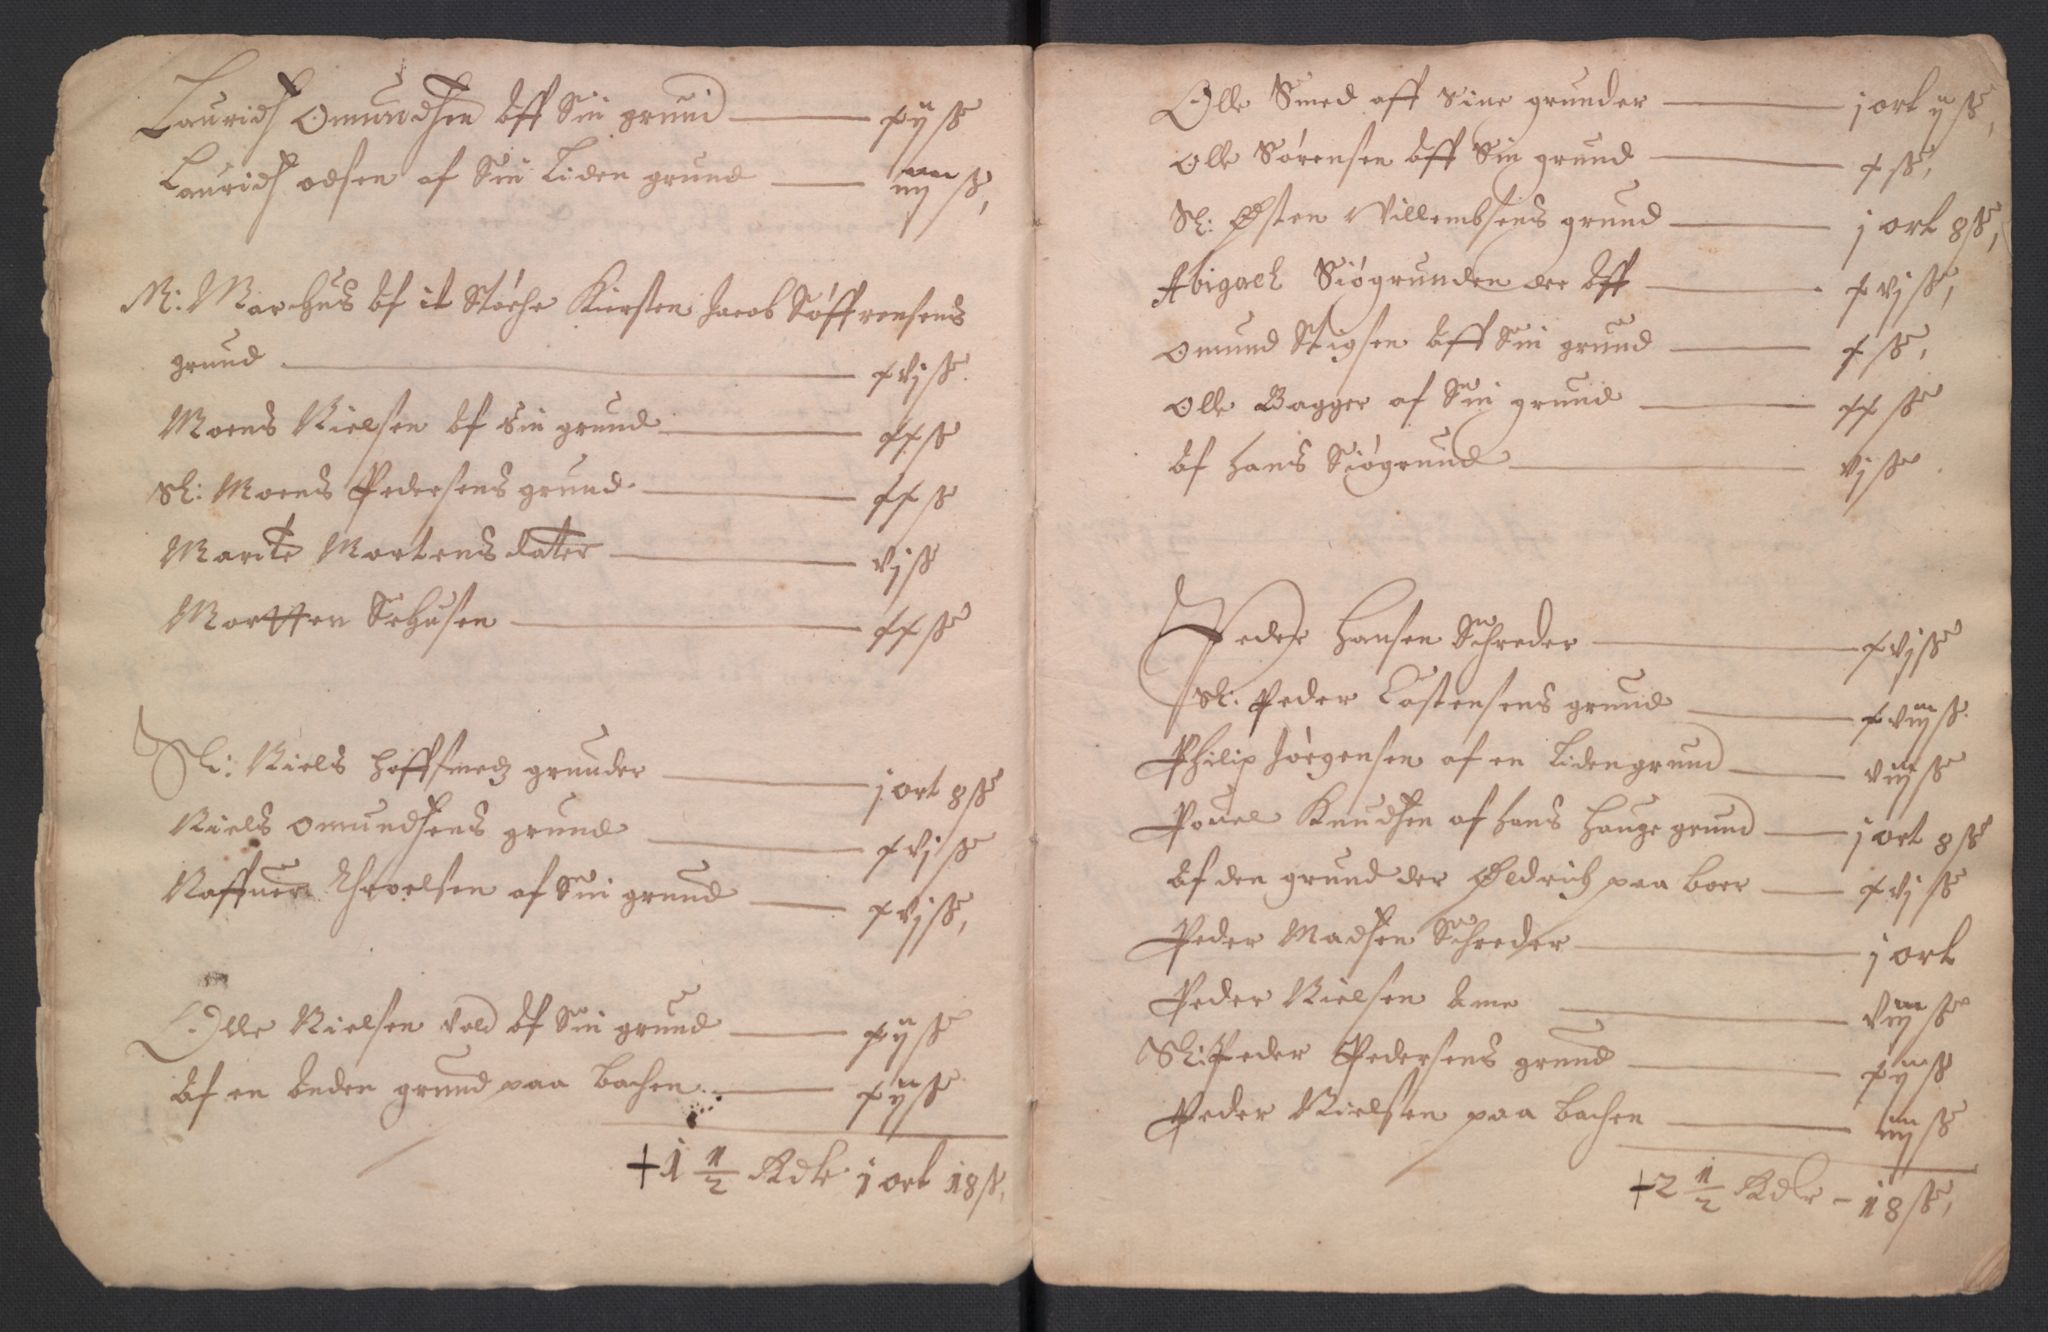 Lauridz Omundsen aff Sin grund — xij ß
Lauridz odsen af Sin Liden grund — iiij ß,
M: Marchus af it Støche Kirsten Jacob Søffrensens
grund — xvj ß.
Moens Nielsen af sin grund — xx ß
Sl: Moens Pedersens grund — xx ß
Marite Mortens dater — vj ß
Mortten Sehusen — xx ß
Sl: Niels hoffsmedz grunder — j ort 8 ß
Niels omundsens grund — xvj ß
Raffuer Throelsen af Sin grund — xvj ß,
Olle Nielsen vold af Sin grund — xij ß
af en anden grund paa bachen — xij ß
+1 1/2 Rdr j ort 18 ß,
Olle Smed aff sine grunder — j ort ij ß,
olle Sørensen aff Sin grund — x ß,
Sl: Østen Villembsens grund — j ort 8 ß,
Abigaell Siøgrunden der aff — xvj ß,
omund Stigsen aff Sin grund — x ß,
olle Bagger af Sin grund — xx ß
af hans Siøgrund — vj ß.
Peder hansen Schreder — xvj ß
Sl: Peder Castensens grund — xviij ß.
Philip Jørgensen af en Liden grund — viij ß
Pouel Knudsen af hans hauge grund — j ort 8 ß
af den grund der Øldrich paa boer — xvj ß
Peder Madsen Schreder — j ort
Peder Nielsen ame — viij ß
Sl: Peder Pedersens grund — xij ß
Peder Nielsen paa bachen — iiij ß
+2 1/2 Rdr – 18 ß,